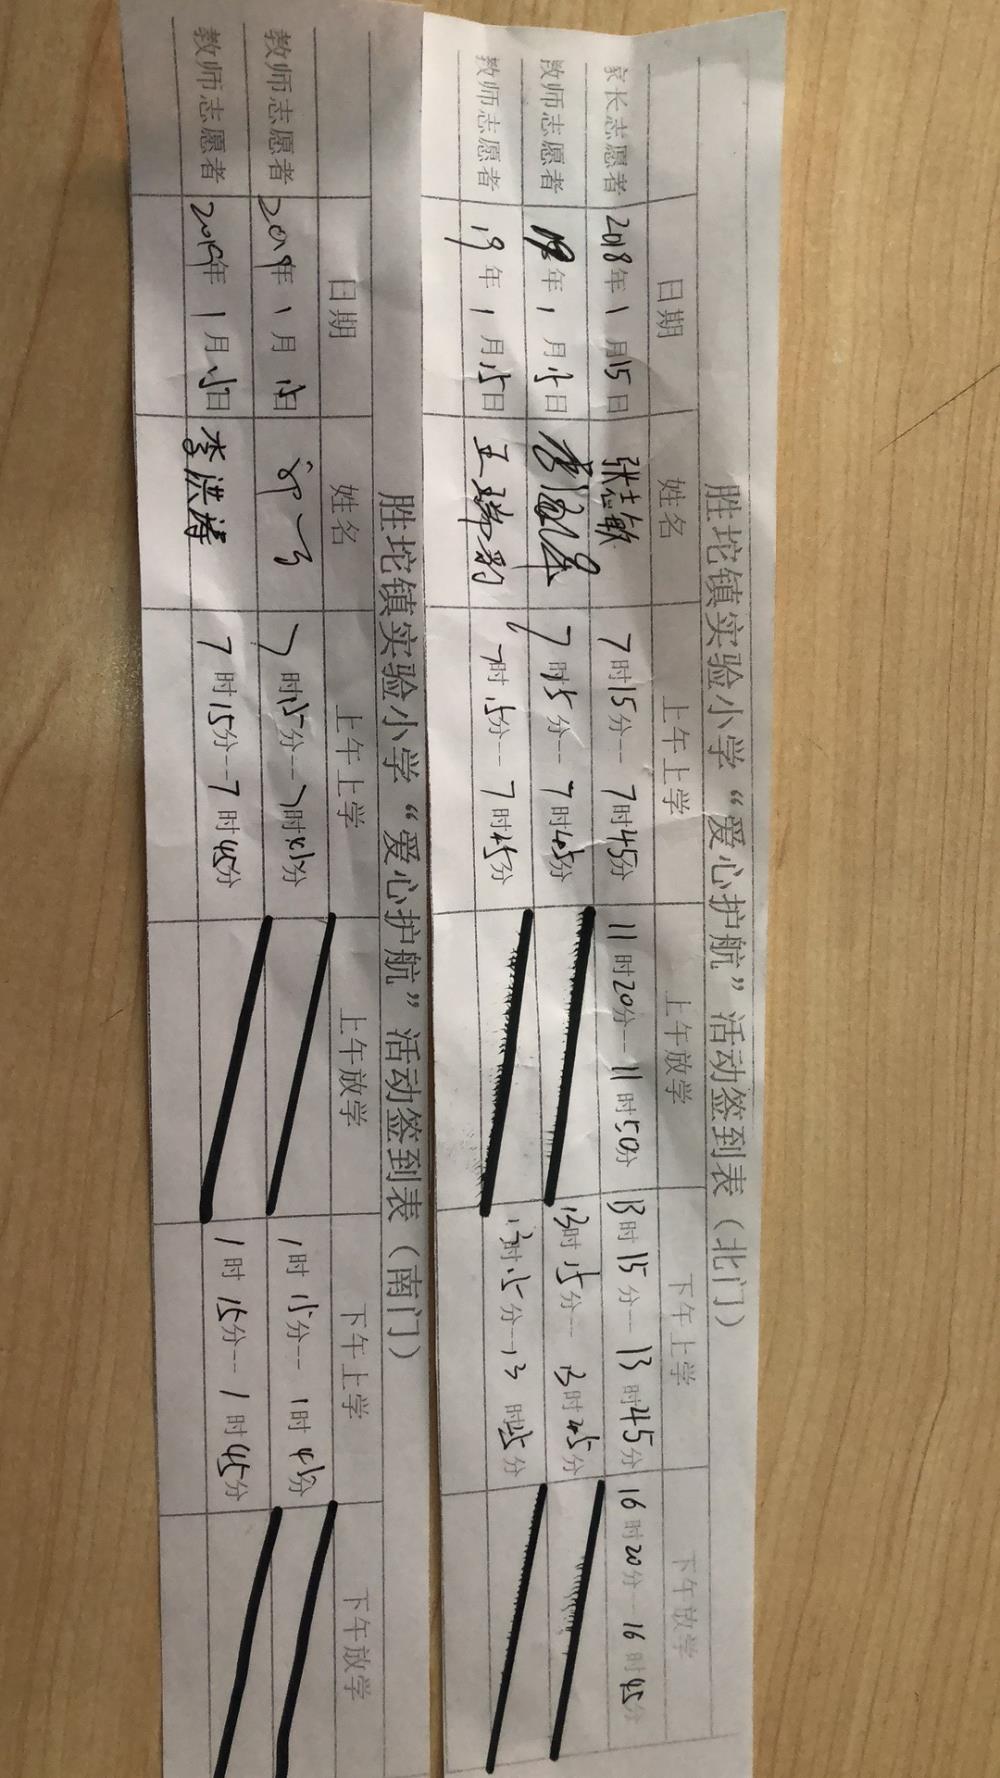 胜坨镇实验小学“爱心护航”活动签到表（北门）
日期 姓名 上午上学 上午放学 下午上学 下午放学
家长志愿者 2018年1月15日 张志敏 7时15分--7时45分 11时20分--11时50分 13时15分--13时45分 16时20分--16时45分
教师志愿者 年1月15日 7时15分--7时45分 13时15分--13时45分
教师志愿者 19年1月15日 王瑞豹 7时15分--7时45分 13时15分--13时45分
胜坨镇实验小学“爱心护航”活动签到表（南门）
日期 姓名 上午上学 上午放学 下午上学 下午放学
教师志愿者 2019年1月15日 7时15分--7时45分 1时15分--1时45分
教师志愿者 2019年1月15日 李洪涛 7时15分--7时45分 1时15分--1时45分